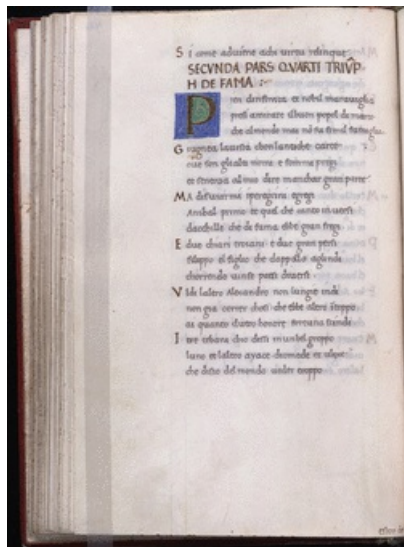 S i come adiuine achi uirtu relinque
SECVNDA PARS QVARTI TRIVP
H DE FAMA :
P ien dinfinita et nobil marauiglia
presi amirare il buon popol di marte
che al mondo mai non fu simil famiglia
G iugnea la uista con lantiche carte
oue son gli alti nomi e sommi pregi
et sentia al mio dire manchar gran parte
M A disuiarmi i peregrini egregi
Anibal primo et quel che canto in uersi
dacchille che di fama ebbe gran fregi
E due chiari troiani e due gran persi
filippo el figlio che da pella aglindi
correndo uinse paesi diuersi
V idi laltro Alexandro non lungie indi
non gia correr chosi che ebbe altro stoppo
I tre tebani chio dissi in un bel groppo
luno et laltro ayace diomede et ulixe
che disio del mondo ueder troppo